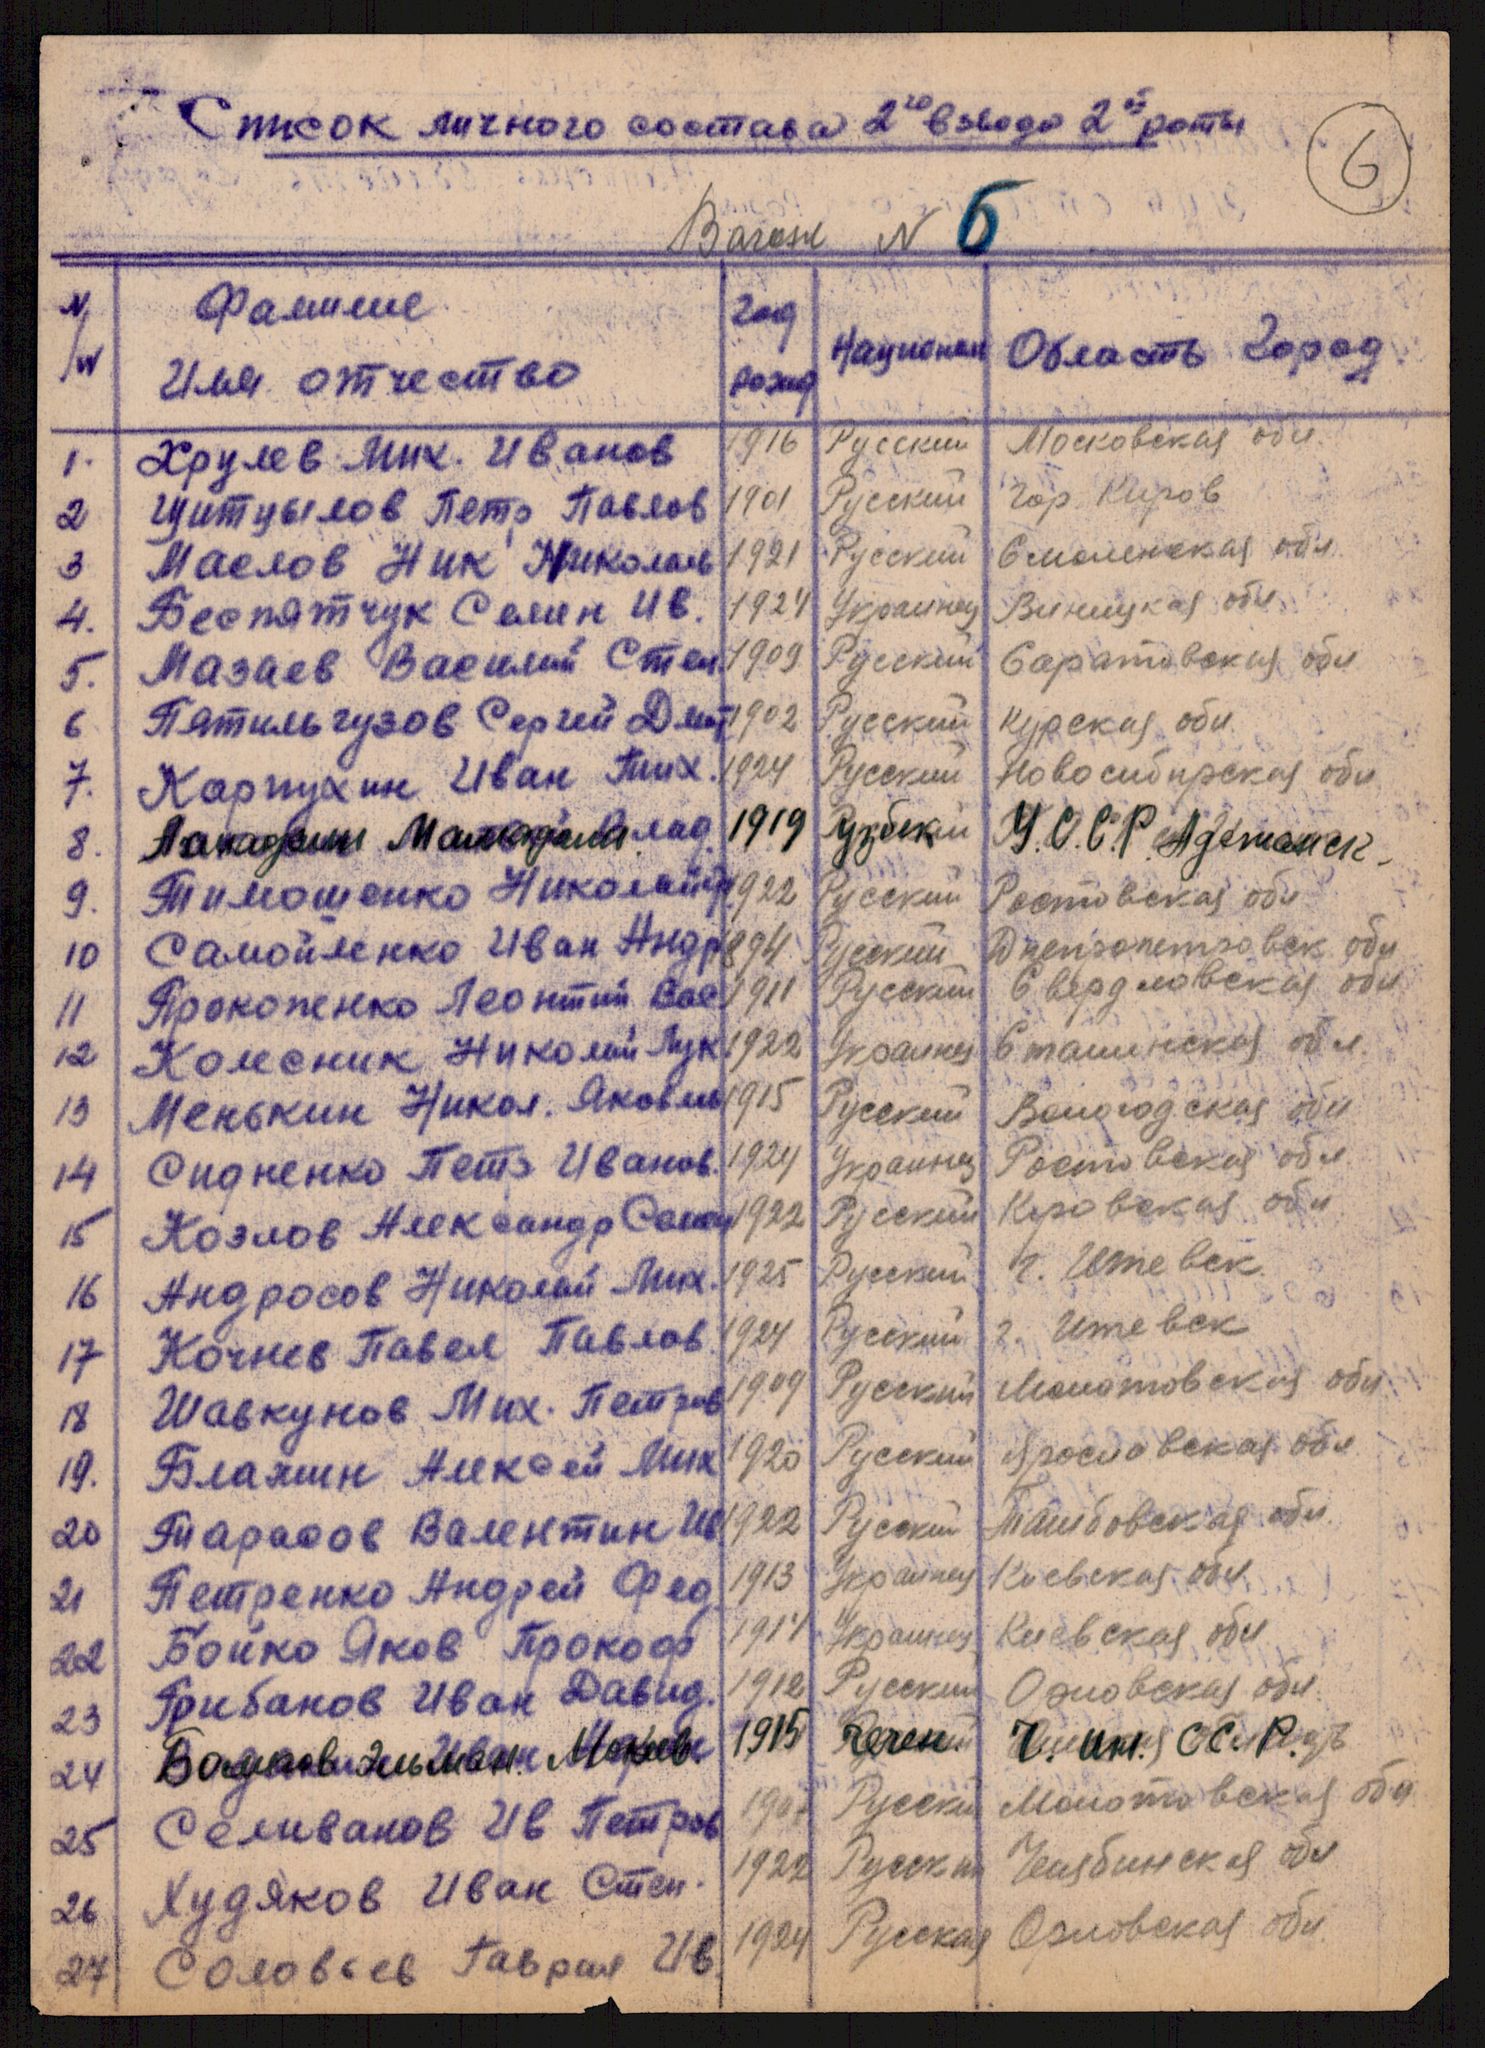 Список личного состава 2го взвода 2ой роты
6
Вагон N 6
N/N Фамилие Имя отчество Год рожд Национал Область Город
1. Хрулев Мих. Иванов 1916 Русский Московская обл
2 Щитцылов Петр Павлов 1901 Русский Гор Киров
3 Маслов Ник Николаев 1921 Русский Смоленская обл
4. Беспятчук Семен Ив. 1924 Украинец Виницкая обл
5. Мазаев Василий Степ 1909 Русский Саратовская обл
6 Пятильгузов Сергей Дмит 1902 Русский Курская обл
7. Карпухин Иван Тих. 1924 Русский Новосибирская обл
8. 1919 Узбек У.С.С.Р.
9. Тимошенко Николай 1922 Русский Ростовская обл
10 Самойленко Иван Андр 1894 Русский Днепропетровск обл
11 Прокопенко Леонтий Вас 1911 Русский Свердловская обл
12 Колесник Николай Лук 1922 Украинец Сталинская обл
13 Менькин Никол. Яковлев 1915 Русский Вологодская обл
14 Сидненко Петр Иванов. 1924 Украинец Ростовская обл
15 Козлов Александр Семен 1922 Русский Кировская обл
16 Андросов Николай Мих. 1925 Русский г. Ижевск
17 Кочнев Павел Павлов 1924 Русский г. Ижевск
18 Шавкунов Мих. Петров 1909 Русский Молотовская обл
19. Блажин Алексей Мих 1920 Русский Ярославская обл
20 Тарасов Валентин Ив 1922 Русский Тамбовская обл
21 Петренко Андрей Фед. 1913 Украинец Киевская обл
22 Бойко Яков Прокоф 1914 Украинец Киевская обл
23 Грибанов Иван Давид. 1912 Русский Орловская обл
24 1915 Чечен. Ч. ин. СС.Р.
25 Селиванов Ив Петров 1907 Русски Молотовская обл
26 Худяков Иван Степ. 1922 Русский Челябинская обл
27 Соловьев Гаврил Ив. 1924 Русская Орловская обл